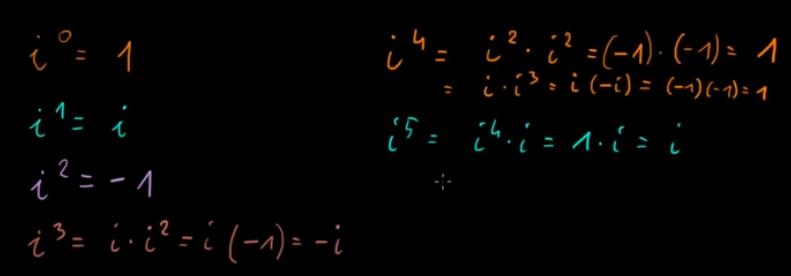 i⁰ = 1
i¹ = i
i² = -1
i³ = i · i² = i (-1) = -i
i⁴ = i² · i² = (-1) · (-1) = 1
= i · i³ = i (-i) = (-1)(-1) = 1
i⁵ = i⁴ · i = 1 · i = i